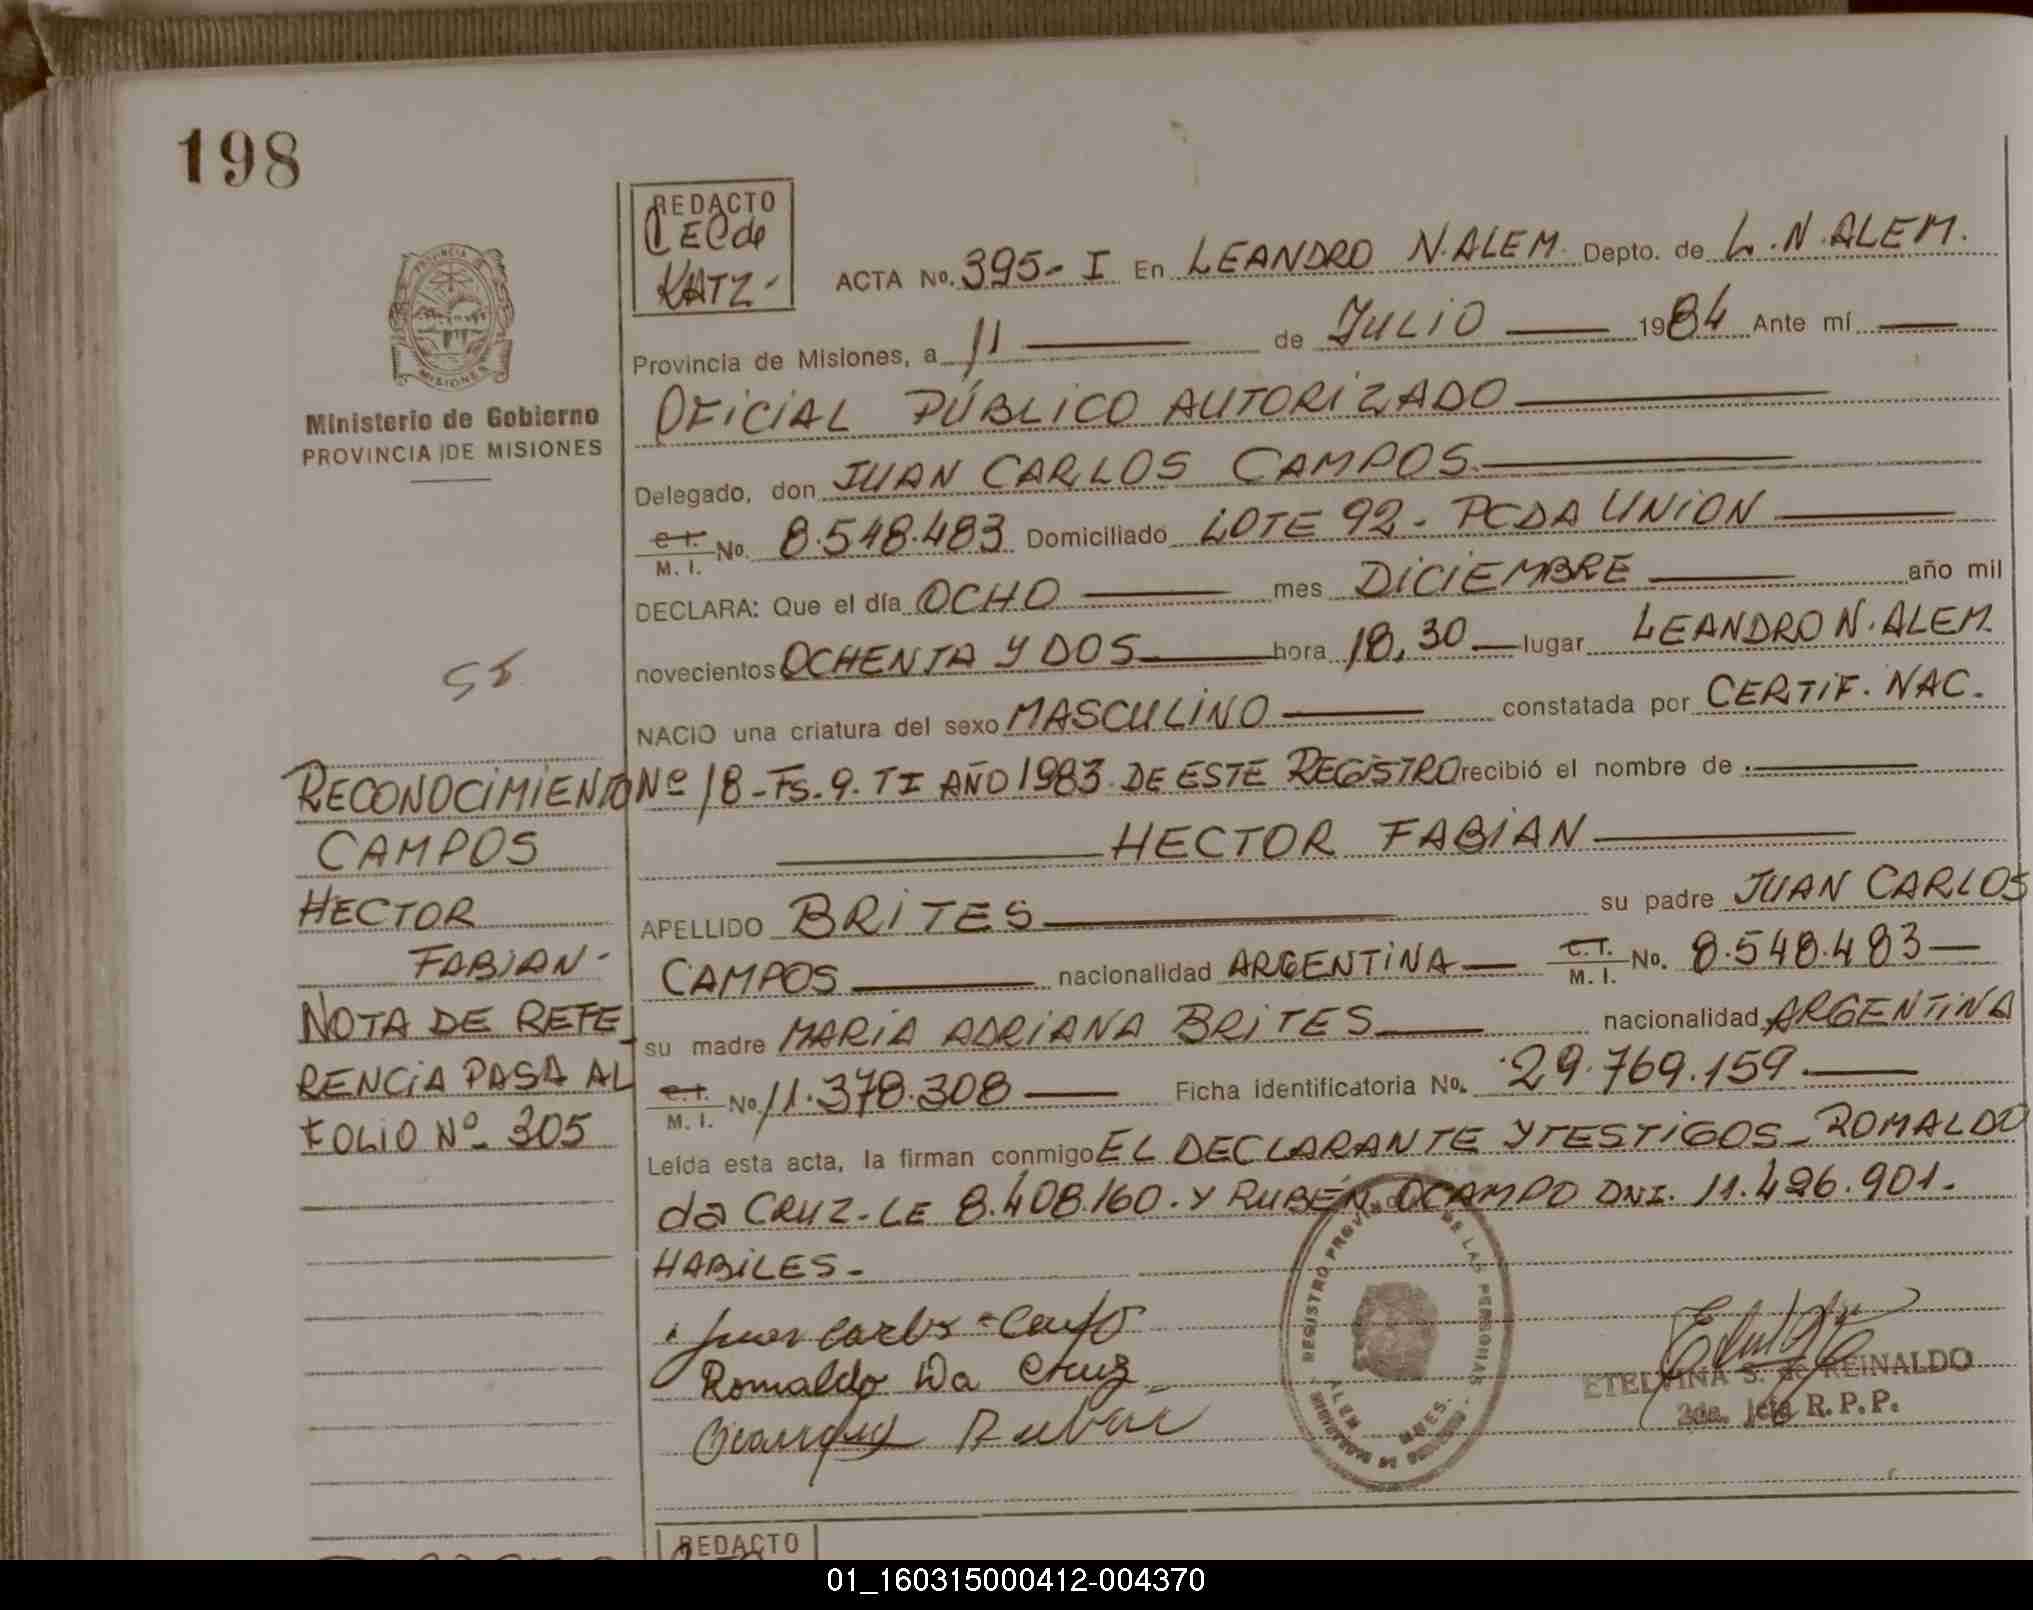 198
REDACTO
C E C de
KATZ-
PROVINCIA DE
MISIONES
Ministerio de Gobierno
PROVINCIA DE MISIONES
ACTA No. 395- I En LEANDRO N.ALEM. Depto. de L.N.ALEM.
Provincia de Misiones, a 11 de JULIO 1984 Ante mí
OFICIAL PÚBLICO AUTORIZADO
Delegado, don JUAN CARLOS CAMPOS.
C I. M. I. No. 8.548.483 Domiciliado LOTE 92 - PCDA UNION
DECLARA: Que el día OCHO mes DICIEMBRE año mil
novecientos OCHENTA Y DOS hora 18,30 lugar LEANDRO N. ALEM.
NACIO una criatura del sexo MASCULINO constatada por CERTIF. NAC.
Nº 18 - Fs. 9. TI AÑO 1983. DE ESTE REGISTRO recibió el nombre de
HECTOR FABIAN
APELLIDO BRITES su padre JUAN CARLOS
CAMPOS nacionalidad ARGENTINA C.I. M. I. No. 8.548.483
su madre MARIA ADRIANA BRITES nacionalidad ARGENTINA
C.I. M. I. No 11.378.308 Ficha identificatoria No. 29.769.159
Leída esta acta, la firman conmigo EL DECLARANTE Y TESTIGOS - ROMALDO
da CRUZ - LE 8.408.160. Y RUBEN OCAMPO DNI. 11.426.901.
HABILES-
RECONOCIMIENTO
CAMPOS
HECTOR
FABIAN-
NOTA DE REFE_
RENCIA PASA AL
FOLIO Nº 305
Juan Carlos Campos
Romaldo Da Cruz
Ocampo Ruben
REGISTRO PROVINCIAL DE LAS PERSONAS
ALEM MNES.
ETELVINA S. de REINALDO
2da. Jefa R.P.P.
REDACTO
01_160315000412-004370